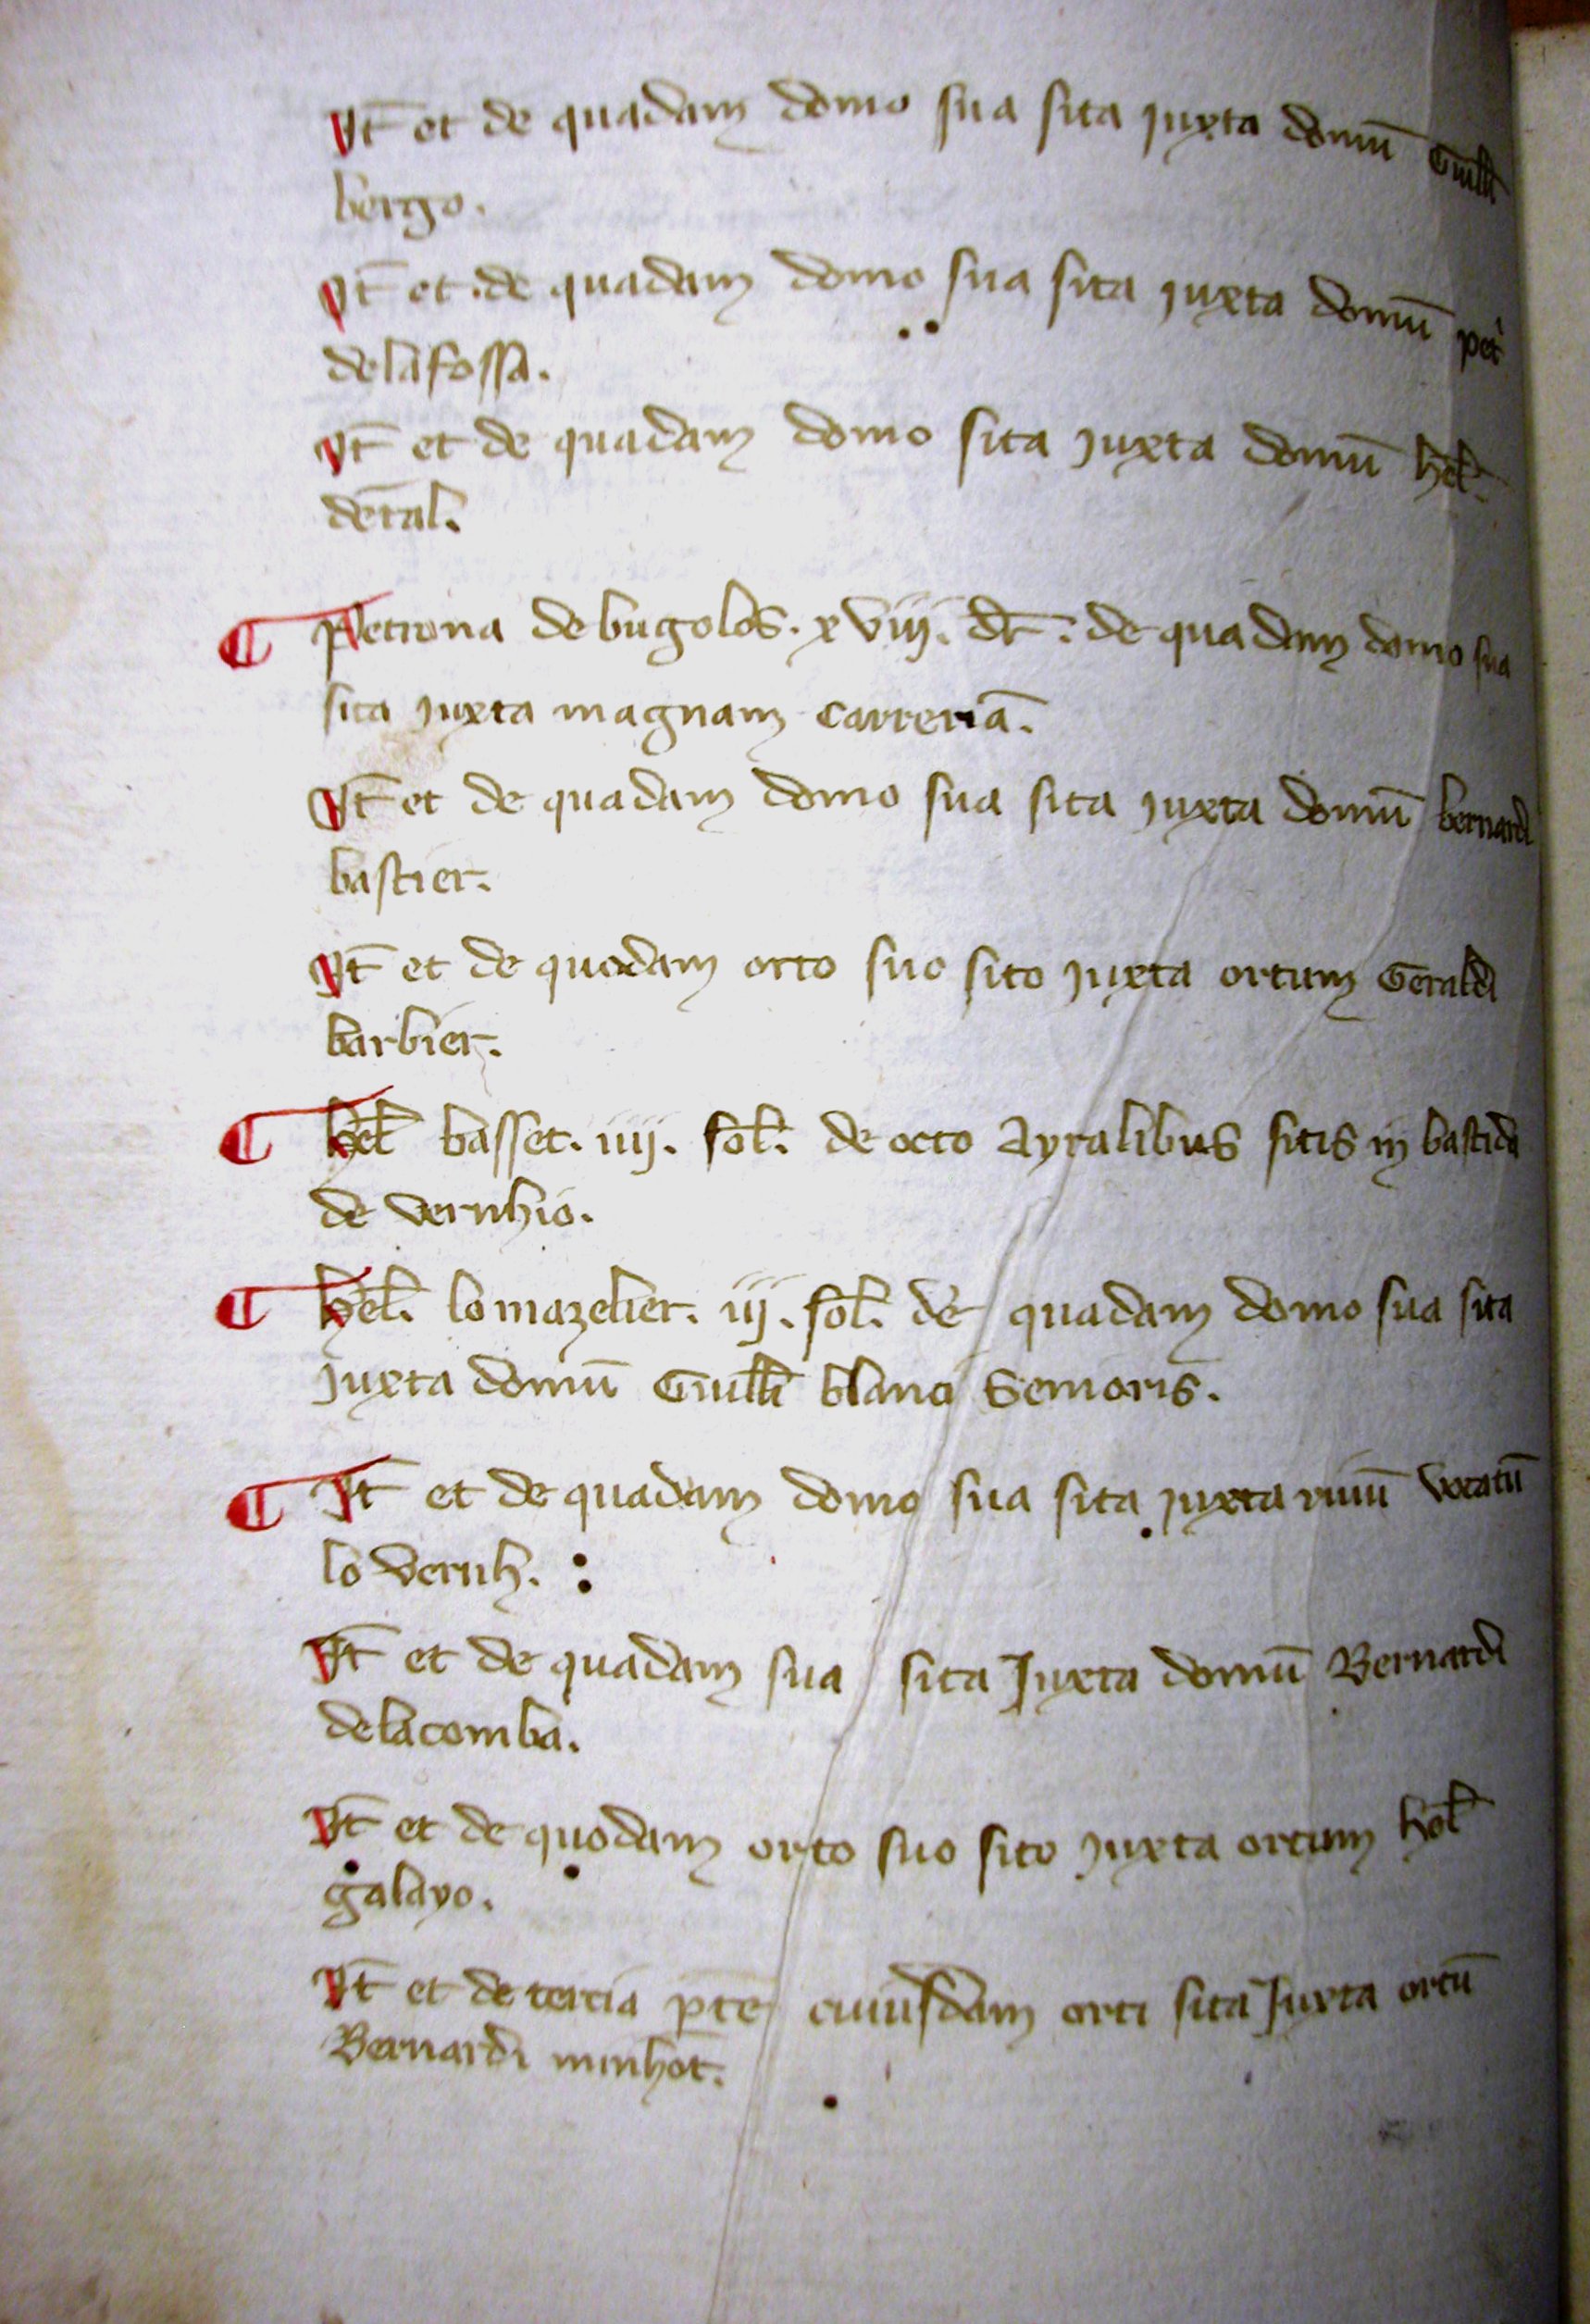 It̄ et de quadam domo sua sita juxta domū Guillī
bergo.
It̄ et de quadam domo sua sita juxta domū pet̄
delafossa.
It̄ et de quadam domo sita juxta domū hel̄.
detal.
¶ Petrona de bugolos. xviij. dr̄. de quadam domo sua
sita juxta magnam carreriā.
It̄ et de quadam domo sua sita juxta domū bernardi
bastier.
It̄ et de quodam orto suo sito juxta ortum Geraldi
barbier.
¶ hel̄ basset. iiij. sol̄. de octo ayralibus sitis in bastida
de vernhio.
¶ hel̄. lo mazelier. iij. sol̄. de quadam domo sua sita
juxta domū Guillī blanci Senioris.
¶ It̄ et de quadam domo sua sita juxta riuū vocatū
lo vernh.
It̄ et de quadam sua sita Juxta domū Bernardi
delacomba.
It̄ et de quodam orto suo sito juxta ortum hel̄
galayo.
It̄ et de tercia p̄te cuiusdam orti sita Juxta ortū
Bernardi minhot.